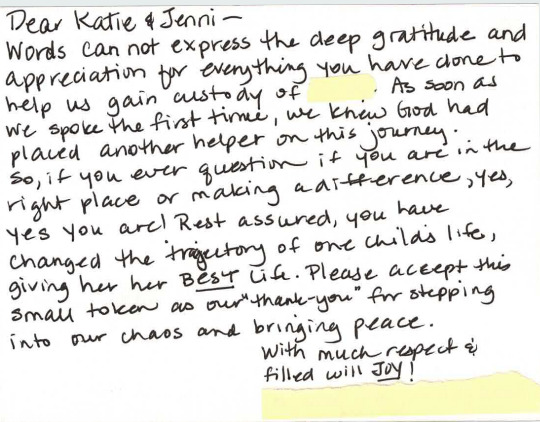 Dear Katie & Jenni —
Words can not express the deep gratitude and
appreciation for everything you have done to
help us gain custody of . As soon as
we spoke the first time, we knew God had
placed another helper on this journey.
So, if you ever question if you are in the
right place or making a difference, yes,
yes you are! Rest assured, you have
changed the trajectory of one child's life,
giving her her BEST life. Please accept this
small token as our "thank-you" for stepping
into our chaos and bringing peace.
With much respect &
filled will JOY!